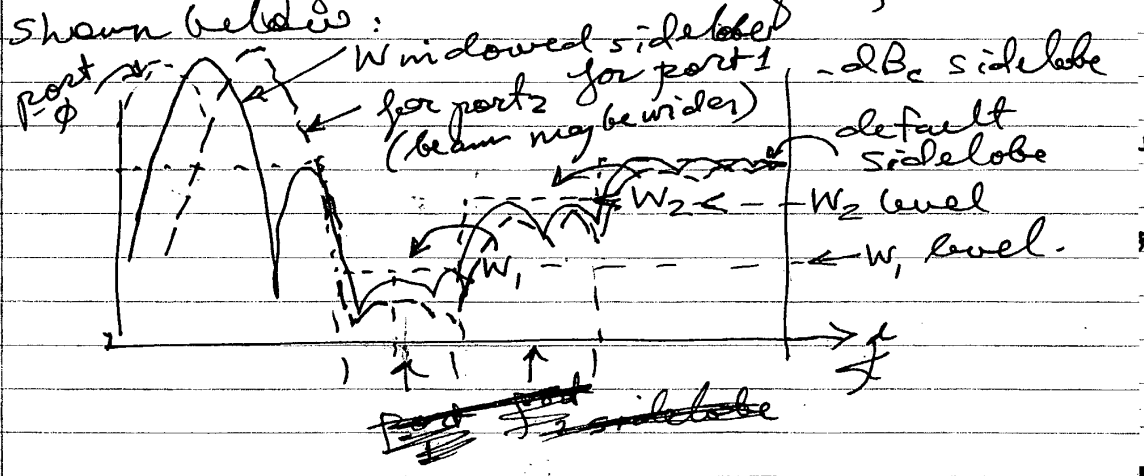 shown below:
Windowed sidelobes
for port 1
port
φ
for port 2
(beam may be wider)
-dBc sidelobe
default
sidelobe
W2 <
W2 level
W1
W1 level.
f